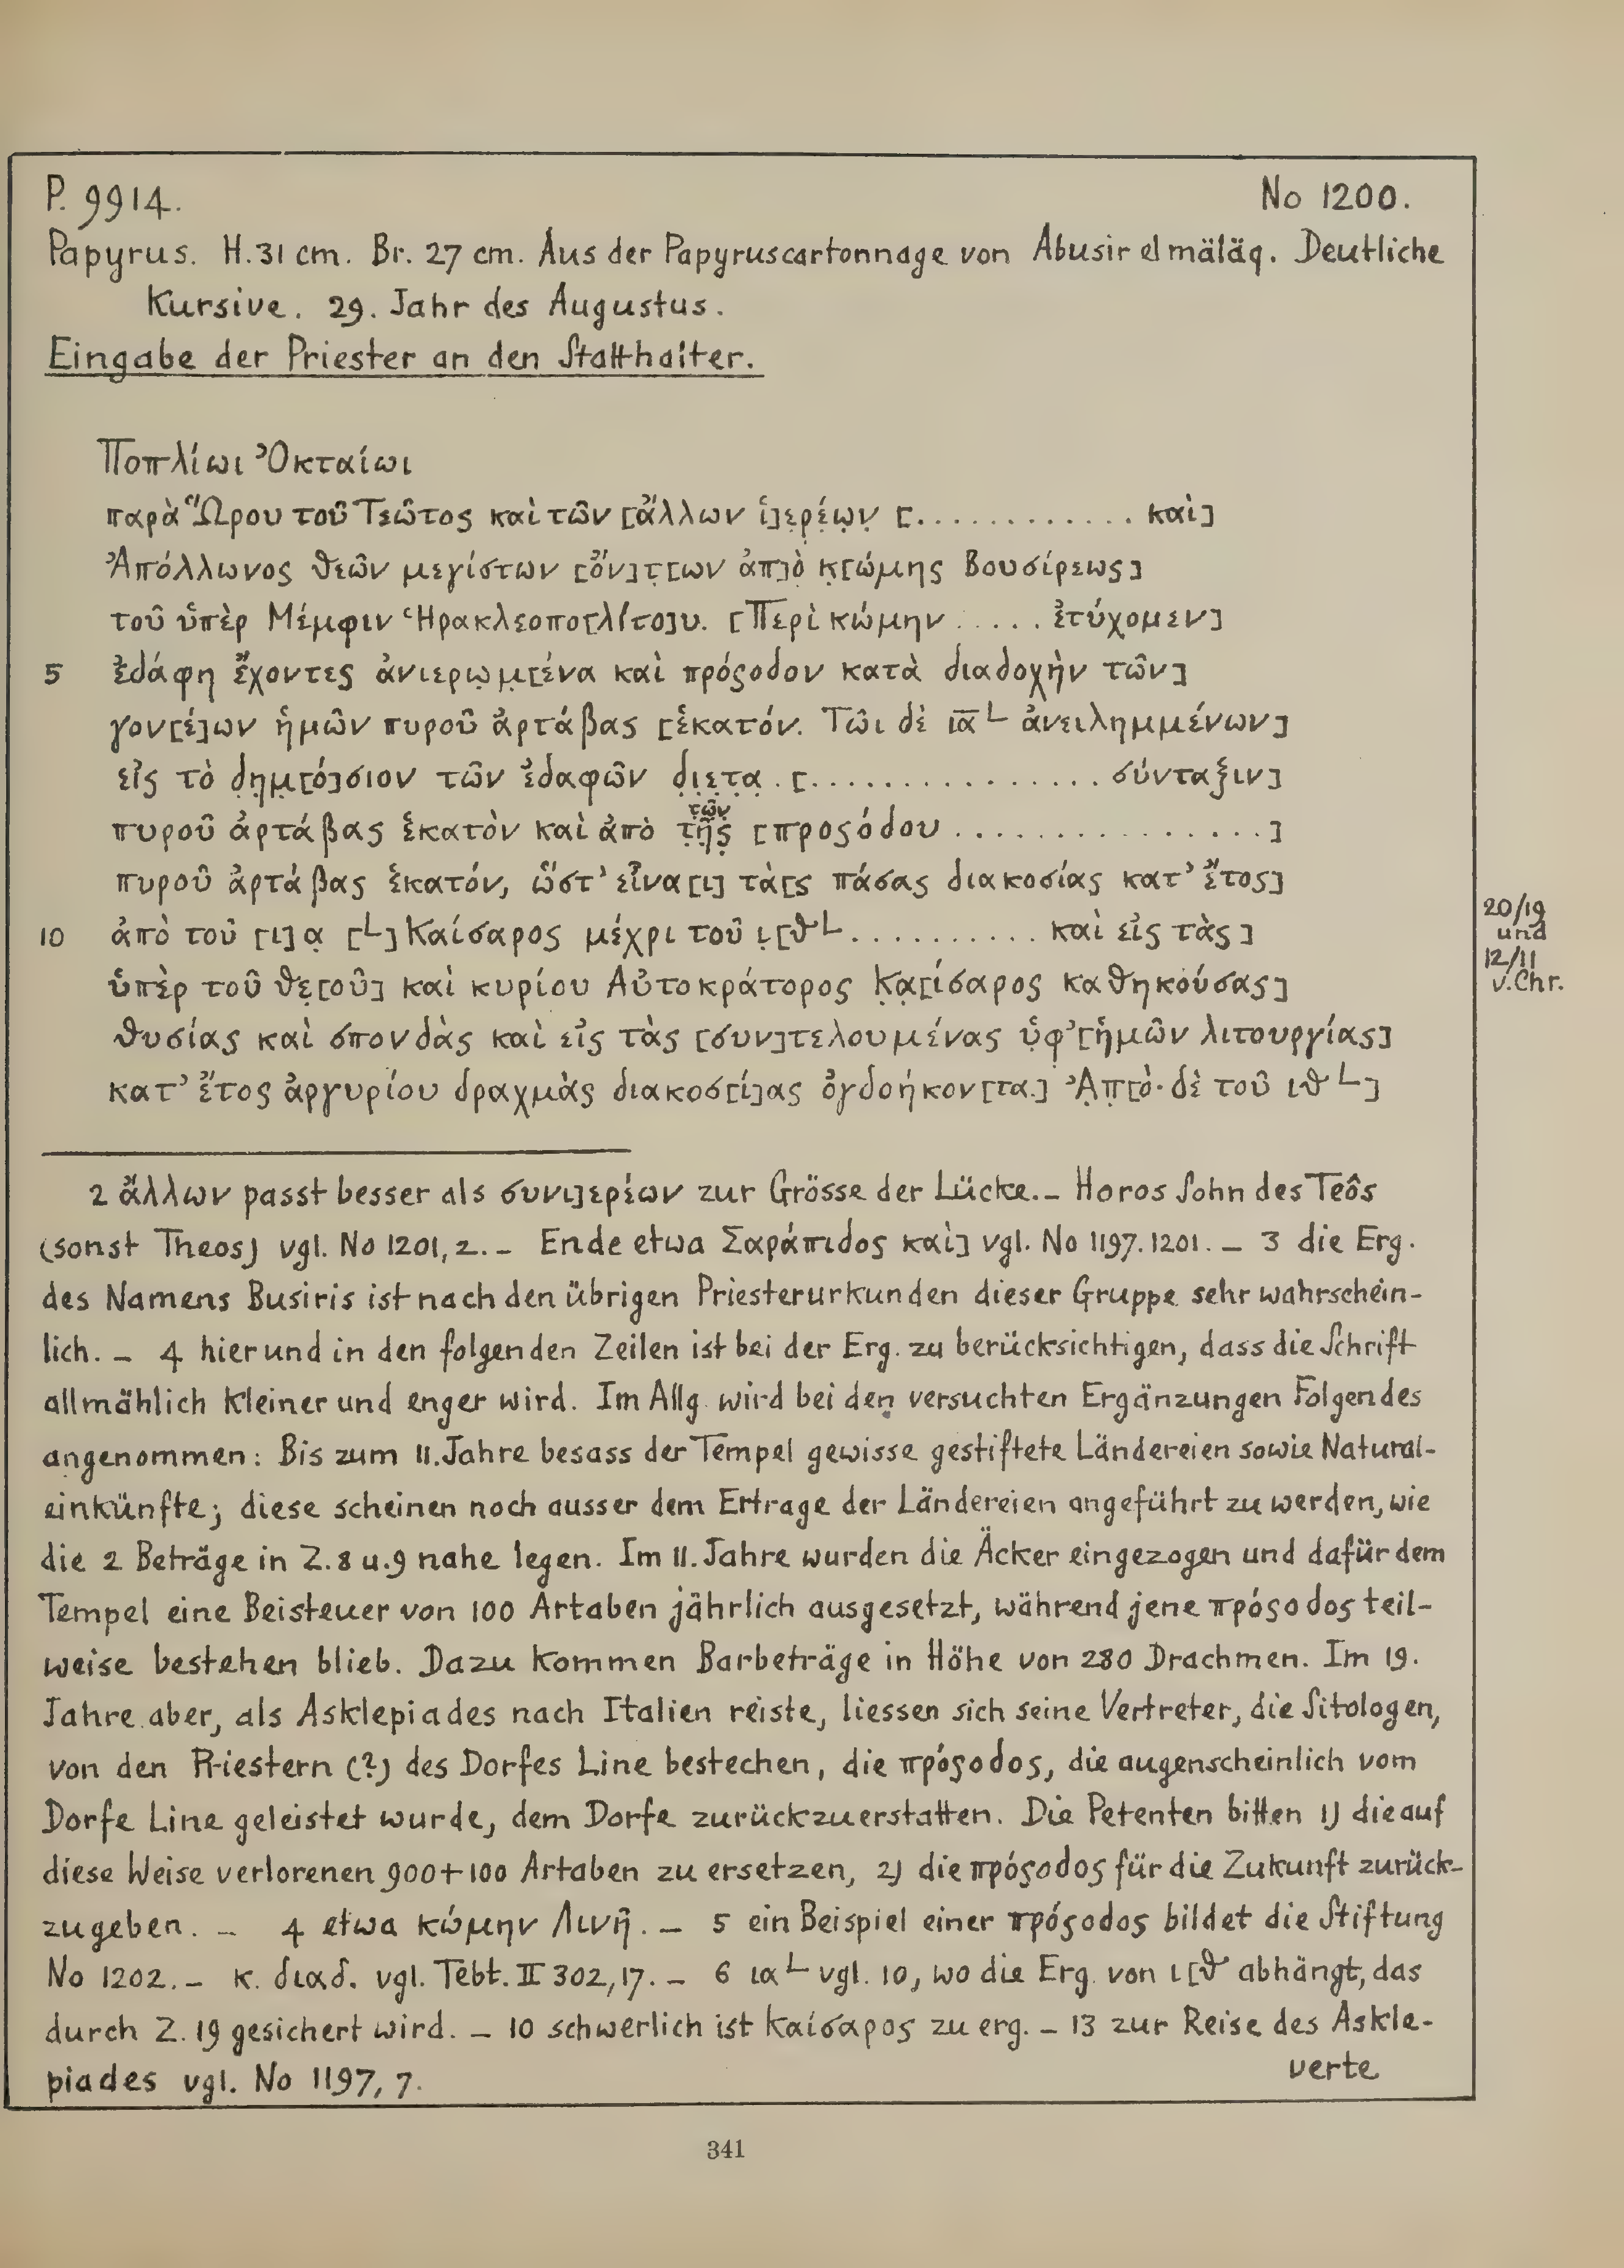 P. 9914. No 1200.
Papyrus. H. 31 cm. Br. 27 cm. Aus der Papyruscartonnage von Abusir el mäläq. Deutliche
Kursive. 29. Jahr des Augustus.
Eingabe der Priester an den Statthalter.
Ποπλίωι Ὀκταίωι
παρὰ Ὥρου τοῦ Τεῶτος καὶ τῶν [ἄλλων ἱ]ε̣ρ̣έ̣ω̣ν̣ [. . . . . . . . . . . . . καὶ]
Ἀπόλλωνος θεῶν μεγίστων [ὄν]τ̣[ων ἀπ]ὸ̣ κ̣[ώμης Βουσίρεως]
τοῦ ὑπὲρ Μέμφιν Ἡρακλεοπο[λίτο]υ. [Περὶ κώμην . . . . . ἐτύχομεν]
5 ἐδάφη ἔχοντες ἀνιερω̣μ̣[ένα καὶ πρόςοδον κατὰ διαδοχὴν τῶν]
γον[έ]ων ἡμῶν πυροῦ ἀρτάβας [ἑκατόν. Τῶι δὲ ι̅α̅ └ ἀνειλημμένων]
εἰς τὸ δ̣η̣μ̣[ό]σιον τῶν ἐδαφῶν δ̣ι̣ε̣τ̣α̣ . [. . . . . . . . . . . . . . . . σύνταξιν]
τῶν
πυροῦ ἀρτάβας ἑκατὸν καὶ ἀπὸ τ̣ῆ̣ς̣ [προςόδου . . . . . . . . . . . . . . . .]
πυροῦ ἀρτάβας ἑκατόν, ὥστ’ εἶνα[ι] τὰ[ς πάσας διακοσίας κατ’ ἔτος]
10 ἀπὸ τοῦ [ι]α̣ [└] Καίσαρος μέχρι τοῦ ι̣[θ└ . . . . . . . . . . καὶ εἰς τὰς]
20/19
und
12/11
v. Chr.
ὑπὲρ τοῦ θε̣[οῦ] καὶ κυρίου Αὐτοκράτορος Κ̣α̣[ίσαρος καθηκούσας]
θυσίας καὶ σπονδὰς καὶ εἰς τὰς [συν]τελουμένας ὑ̣φ̣’ [ἡμῶν λιτουργίας]
κατ’ ἔτος ἀργυρίου δραχμὰς διακοσ[ί]ας ὀγδοήκον[τα.] Ἀ̣π̣[ὸ· δὲ τοῦ ιθ └]
2 ἄλλων passt besser als συνι]ερέων zur Grösse der Lücke. – Horos Sohn des Teôs
(sonst Theos) vgl. No 1201, 2. – Ende etwa Σαράπιδος καὶ] vgl. No 1197. 1201. – 3 die Erg.
des Namens Busiris ist nach den übrigen Priesterurkunden dieser Gruppe sehr wahrschein-
lich. – 4 hier und in den folgenden Zeilen ist bei der Erg. zu berücksichtigen, dass die Schrift
allmählich kleiner und enger wird. Im Allg. wird bei den versuchten Ergänzungen Folgendes
angenommen: Bis zum 11. Jahre besass der Tempel gewisse gestiftete Ländereien sowie Natural-
einkünfte; diese scheinen noch ausser dem Ertrage der Ländereien angeführt zu werden, wie
die 2 Beträge in Z. 8 u. 9 nahe legen. Im 11. Jahre wurden die Äcker eingezogen und dafür dem
Tempel eine Beisteuer von 100 Artaben jährlich ausgesetzt, während jene πρόςοδος teil-
weise bestehen blieb. Dazu kommen Barbeträge in Höhe von 280 Drachmen. Im 19.
Jahre aber, als Asklepiades nach Italien reiste, liessen sich seine Vertreter, die Sitologen,
von den Priestern (?) des Dorfes Line bestechen, die πρόςοδος, die augenscheinlich vom
Dorfe Line geleistet wurde, dem Dorfe zurückzuerstatten. Die Petenten bitten 1) die auf
diese Weise verlorenen 900 + 100 Artaben zu ersetzen, 2) die πρόςοδος für die Zukunft zurück-
zugeben. – 4 etwa κώμην Λινῆ. – 5 ein Beispiel einer πρόςοδος bildet die Stiftung
No 1202. – κ. διαδ. vgl. Tebt. II 302, 17. – 6 ια└ vgl. 10, wo die Erg. von ι[θ abhängt, das
durch Z. 19 gesichert wird. – 10 schwerlich ist Καίσαρος zu erg. – 13 zur Reise des Askle-
piades vgl. No 1197, 7. verte
341